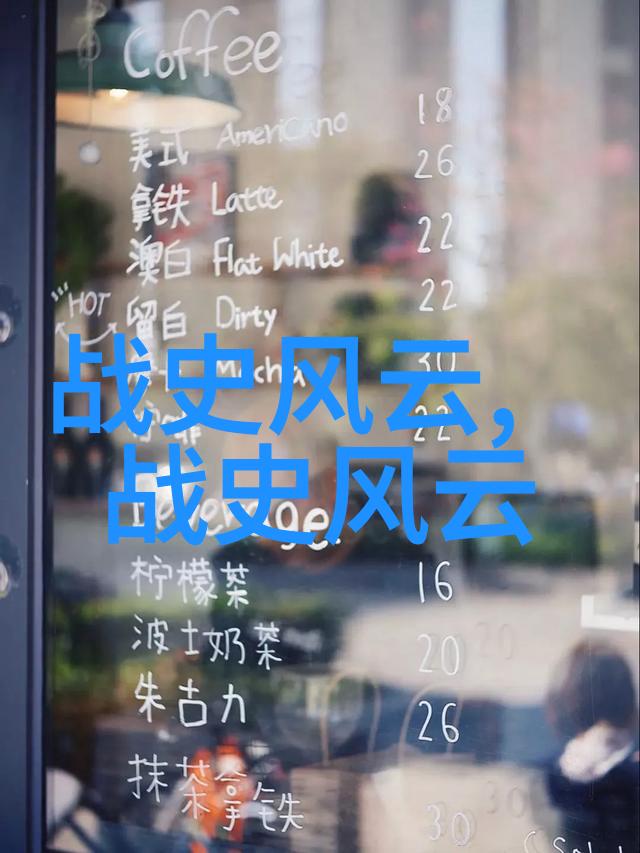 Coffee
美式 Americano 18
拿铁 Latte 26
澳白 Flat White 22
HOT
留白 Dirty 22
Mocha 30
战史风云，
22
战史风云
Beverage.
柠檬茶 16
波士奶茶 20
朱古力 26
抹茶拿铁 30